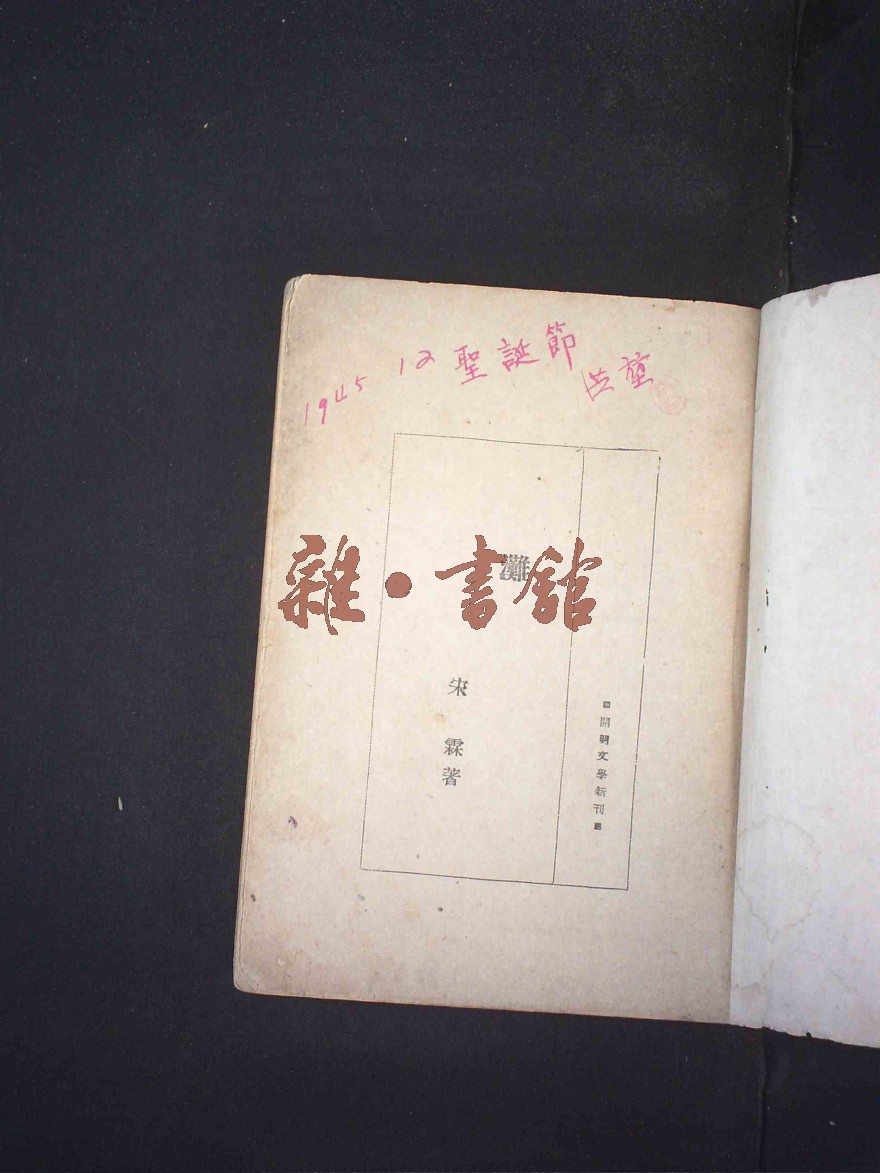 1945 12 聖誕節
雜·書館
灘
宋霖著
開明文學新刊